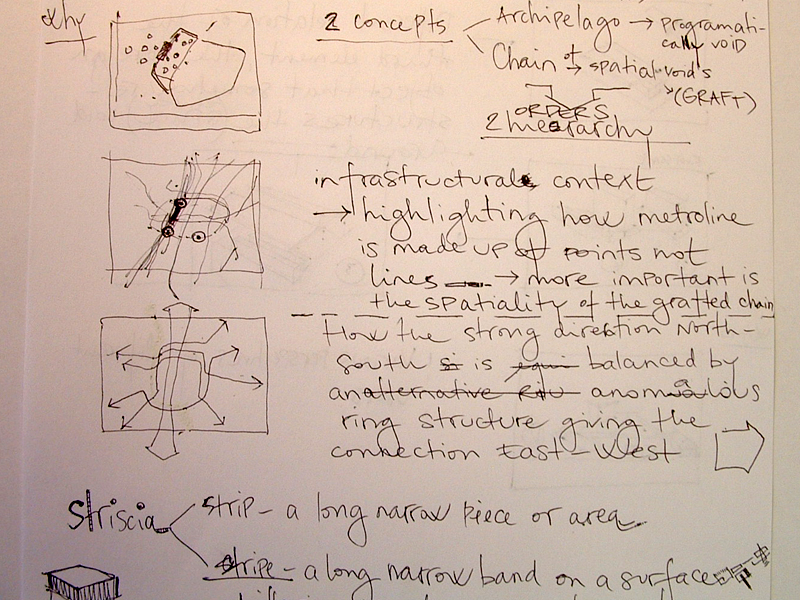 Why
2 concepts
Archipelago → programati-
cally void
Chain of → spatial void's
(GRAFT)
ORDERS
2 hierarchy
infrastructural context
→ highlighting how metroline
is made up of points not
lines → more important is
the spatiality of the grafted chain
How the strong direction North-
South is balanced by
an alternative anomalous
ring structure giving the
connection East-West
Striscia
strip - a long narrow piece or area
stripe - a long narrow band on a surface